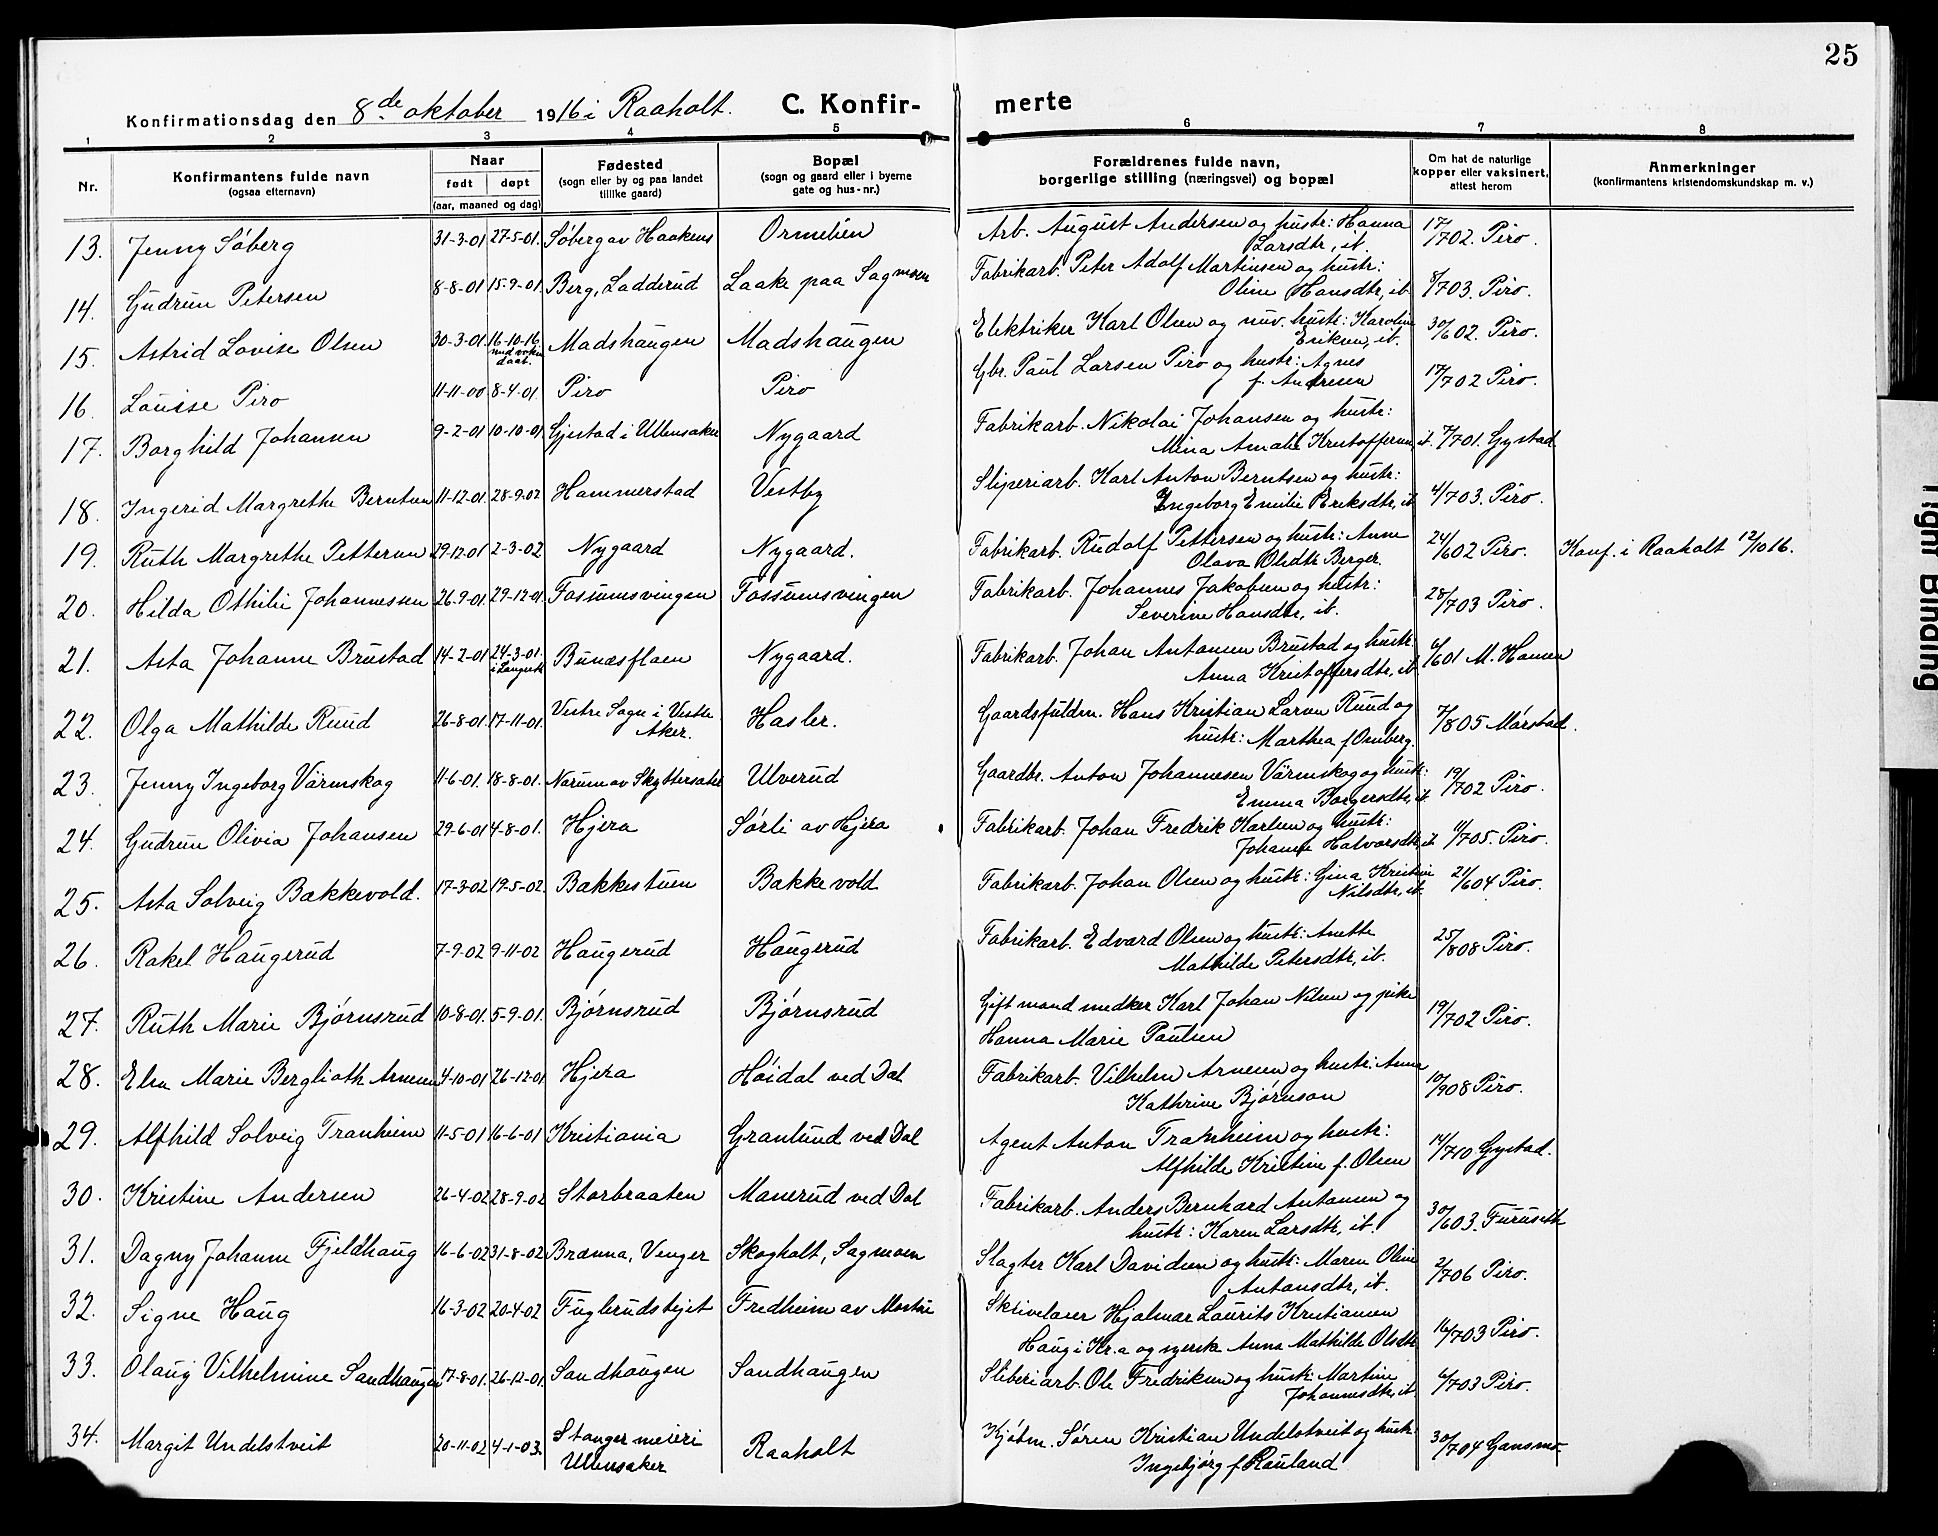 25
Konfirmationsdag den 8de oktober 1916 i Raaholt. C. Konfirmerte
1 2 3 4 5 6 7 8
Nr.
Konfirmantens fulde navn
(ogsaa efternavn)
Naar
født døpt
(aar, maaned og dag)
Fødested
(sogn eller by og paa landet
tillike gaard)
Bopæl
(sogn og gaard eller i byerne
gate og hus-nr.)
Forældrenes fulde navn,
borgerlige stilling (næringsvei) og bopæl
Om hat de naturlige
kopper eller vaksinert,
attest herom
Anmerkninger
(konfirmantens kristendomskundskap m. v.)
13. Jenny Söberg 31-3-01 27-5-01. Søberg av Haakens Ormelien Arb. August Andersen og hustr: Hanna 17/702. Piro.
Larsdtr, ib.
14. Gudrun Petersen 8-8-01 15-9-01 Berg, Ladderud Laake paa Sagmoen Fabrikarb. Peter Adolf Martinsen og hustr: 8/703. Piro.
Oline Hansdtr, ib.
15. Astrid Lovise Olsen 30-3-01 16-10-16 Madshaugen Madshaugen Elektriker Karl Olsen og nuv. hustr: Karoline 30/602. Piro.
daab. Eriksen, ib.
16. Louise Piro 11-11-00 8-4-01. Piro Piro Gbr. Paul Larsen Piro og hustr: Agnes 17/702 Piro.
f. Andresen
17. Borghild Johansen 9-2-01 10-10-01 Gjestad i Ullensaker Nygaard Fabrikarb. Nikolai Johansen og hustr:
Mina Amalie Kristoffersen, ib. 7/701. Gystad
18. Ingerid Margrethe Berntsen 11-12-01 28-9-02 Hammerstad Vestby Sliperiarb. Karl Anton Berntsen og hustr: 4/703. Piro.
Ingeborg Emilie Eriksdtr, ib.
19. Ruth Margrethe Pettersen 29-12-01 2-3-02 Nygaard Nygaard. Fabrikarb. Rudolf Pettersen og hustr: Anne 24/602 Piro. Konf. i Raaholt 12/10 16.
Olava Olsdtr Berger.
20. Hilda Othilie Johannessen 26-9-01. 29-12-01. Fossumsvingen Fossumsvingen Fabrikarb. Johannes Jakobsen og hustr: 28/703 Piro.
Severine Hansdtr, ib.
21. Asta Johanne Brustad 14-2-01 24-3-01. Bunæsflaen Nygaard. Fabrikarb. Johan Antonsen Brustad og hustr: 6/601 M. Hansen
i Langset Anna Kristoffersdtr, ib.
22. Olga Mathilde Ruud 26-8-01. 17-11-01. Vestre Sogn i Vestre Hasler. Gaardsfuldm. Hans Kristian Larsen Ruud og 7/805 Mørstad.
Aker. hustr: Marthea f. Ornberg.
23. Jenny Ingeborg Värmskog 11-6-01. 18-8-01. Narum av Skyttersater Ulverud Gaardbr. Anton Johannesen Värmskog og hustr: 19/702 Piro.
Emma Borgersdtr, ib.
24. Gudrun Olivia Johansen 29-6-01 4-8-01. Hjera Sørli av Hjera Fabrikarb. Johan Fredrik Karlsen og hustr: 11/705. Piro.
Johanne Halvorsdtr, ib.
25. Asta Solveig Bakkevold. 17-3-02 19-5-02. Bakkestuen Bakkevold Fabrikarb. Johan Olsen og hustr: Gina Kristine 21/604 Piro.
Nilsdtr, ib.
26. Rakel Haugerud 7-9-02 9-11-02 Haugerud Haugerud Fabrikarb. Edvard Olsen og hustr: Anette 25/808 Piro.
Mathilde Petersdtr, ib.
27. Ruth Marie Bjørnsrud 10-8-01. 5-9-01. Bjørnsrud Bjørnsrud Gift mand snedker Karl Johan Nilsen og pike 19/702 Piro.
Hanna Marie Paulsen
28. Elsa Marie Berglioth Arnesen 4-10-01 26-12-01 Hjera Høidal ved Dal Fabrikarb. Vilhelm Arnesen og hustr: Anna 10/908 Piro.
Kathrine Bjørnson
29. Alfhild Solveig Tranheim 11-5-01 16-6-01 Kristiania Granlund ved Dal Agent Anton Tranheim og hustr: 14/710 Gystad.
Alfhilde Kristine f. Olsen
30. Kristine Andersen 26-4-02 28-9-02 Storbraaten Manerud ved Dal Fabrikarb. Anders Bernhard Antonsen og 30/603. Furuseth
hustr: Karen Larsdtr, ib.
31. Dagny Johanne Fjeldhaug 16-6-02 31-8-02 Brænna, Venger Skogholt, Sagmoen Slagter Karl Davidsen og hustr: Maren Oline 2/706 Piro.
Antonsdtr, ib.
32. Signe Haug 16-3-02 20-4-02 Fuglerudstejet Fredheim av Mostue Skrivelærer Hjalmar Laurits Kristiansen 16/703 Piro.
Haug i Kr.a og syerske Anna Mathilde Olsdtr
33. Olaug Vilhelmine Sandhaugen 17-8-01. 26-12-01. Sandhaugen Sandhaugen Sliberiarb. Ole Fredriksen og hustr: Martine 6/703 Piro.
Johannesdtr, ib.
34. Margit Undelstveit 20-11-02 4-1-03. Stanger meieri Raaholt Kjøbm. Søren Kristian Undelstveit og hustr: 30/704 Gansmo.
Ullensaker Ingebjørg f. Rauland
Tight Binding